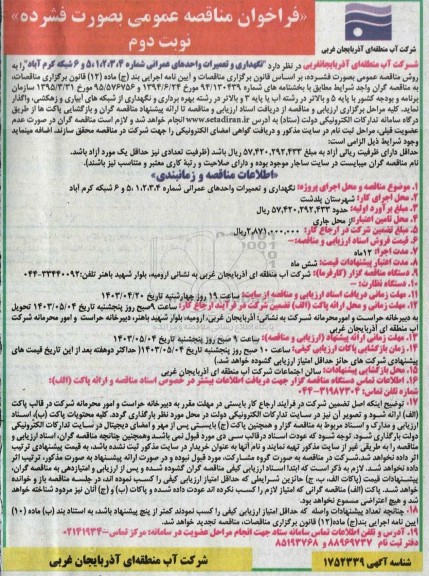 «فراخوان مناقصه عمومی بصورت فشرده»
نوبت دوم
شرکت آب منطقه‌ای آذربایجان غربی
شرکت آب منطقه‌ای آذربایجانغربی در نظر دارد "نگهداری و تعمیرات واحدهای عمرانی شماره ۱،۲،۳،۴، ۵ و ۶ شبکه کرم آباد" را به
روش مناقصه عمومی بصورت فشرده، بر اساس قانون برگزاری مناقصات و آیین نامه اجرایی بند (ج) ماده (۱۲) قانون برگزاری مناقصات،
به مناقصه گران واجد شرایط مطابق با بخشنامه های شماره ۹۴/۱۳۰۴۳۹ مورخ ۱۳۹۴/۶/۲۴ و ۹۵/۵۷۶۷۵۶ مورخ ۱۳۹۵/۳/۳۱ سازمان
برنامه و بودجه کشور با پایه ۵ و بالاتر در رشته آب یا پایه ۳ و بالاتر در رشته بهره برداری و نگهداری از شبکه های آبیاری و زهکشی، واگذار
نماید. کلیه مراحل برگزاری مناقصه از دریافت اسناد ارزیابی و مناقصه تا ارائه پیشنهاد مناقصه گران و بازگشایی پاکات ها از طریق
درگاه سامانه تدارکات الکترونیکی دولت (ستاد) به آدرس www.setadiran.ir انجام خواهد شد و لازم است مناقصه گران در صورت عدم
عضویت قبلی، مراحل ثبت نام در سایت مذکور و دریافت گواهی امضای الکترونیکی را جهت شرکت در مناقصه محقق سازند. اضافه مینماید
وجود شرایط ذیل الزامی است:
حداقل دارای ظرفیت ریالی آزاد به مبلغ ۵۷،۴۲۰،۲۹۲،۴۳۳ ریال باشد (ظرفیت تعدادی نیز حداقل یک مورد آزاد باشد.
نام مناقصه گران میبایست در سایت ساجار موجود بوده و دارای صلاحیت و رتبة کاری معتبر و متناسب نیز باشند).
«اطلاعات مناقصه و زمانبندی»
۱. موضوع مناقصه و محل اجرای پروژه: نگهداری و تعمیرات واحدهای عمرانی شماره ۱،۲،۳،۴، ۵ و ۶ شبکه کرم آباد
۲. محل اجرای کار: شهرستان پلدشت
۳. مبلغ برآورد اولیه: حدود ۵۷،۴۲۰،۲۹۲،۴۳۳ ریال
۴. محل تامین اعتبار: از محل جاری
۵. مبلغ تضمین شرکت در ارجاع کار: ۲،۸۷۱،۰۰۰،۰۰۰ ریال
۶. قیمت فروش اسناد ارزیابی و مناقصه: -
۷. مدت اجرا: ۱۲ ماه
۸. مدت اعتبار پیشنهادات قیمت: شش ماه
۹. دستگاه مناقصه گزار (کارفرما): شرکت آب منطقه ای آذربایجان غربی به نشانی ارومیه، بلوار شهید باهنر تلفن: ۳۳۴۴۰۰۹۲-۰۴۴
۱۰. دستگاه نظارت: -
۱۱. مهلت زمانی دریافت اسناد ارزیابی و مناقصه از سایت: ساعت ۱۹ روز چهارشنبه تاریخ ۱۴۰۳/۰۴/۲۰
۱۲. مهلت زمانی و محل ارائه پاکت (الف) (تضمین شرکت در فرآیند ارجاع کار): ساعت ۹ صبح روز پنجشنبه تاریخ ۱۴۰۳/۰۵/۰۴ تحویل
به دبیرخانه حراست و امورمحرمانه شرکت به نشانی: آذربایجان غربی، ارومیه، بلوار شهید باهنر، دبیرخانه حراست و امور محرمانه شرکت
آب منطقه ای آذربایجان غربی
۱۳. مهلت زمانی ارائه پیشنهاد (ارزیابی و مناقصه): ساعت ۹ صبح روز پنجشنبه تاریخ ۱۴۰۳/۰۵/۰۴
۱۴. زمان بازگشایی پاکات ارزیابی کیفی: ساعت ۱۰ صبح روز پنجشنبه تاریخ ۱۴۰۳/۰۵/۰۴ (حداکثر دوهفته بعد از این تاریخ قیمت های
پیشنهادی شرکت های حائز حداقل امتیاز ارزیابی گشوده خواهد شد).
۱۵. محل بازگشایی پیشنهادات: سالن اجتماعات شرکت آب منطقه ای آذربایجان غربی
۱۶. اطلاعات تماس دستگاه مناقصه گزار جهت دریافت اطلاعات بیشتر در خصوص اسناد مناقصه و ارائه پاکت (الف):
شماره تلفن تماس: ۳۱۹۸۷۳۰۴-۰۴۴
۱۷. توضیح اینکه اصل تضمین شرکت در فرایند ارجاع کار بایستی در مهلت مقرر به دبیرخانه حراست و امور محرمانه شرکت در قالب پاکت
(الف) ارائه شود و تصویر آن نیز در سایت تدارکات الکترونیکی دولت در محل مورد نظر بارگذاری گردد. کلیه محتویات پاکت (ب)، اسناد
ارزیابی و مدارک و اسناد مربوط به مناقصه گزار و همچنین پاکت (ج) بایستی پس از مهر و امضای دیجیتال در سایت تدارکات الکترونیکی
دولت بارگذاری شود. توجه شود که عودت اسناد درقالب سی دی مورد قبول نمی باشد وهمچنین چنانچه مناقصه گران، اسناد ارزیابی و
مناقصه را به طریقی غیر از سایت مذکور تهیه نمایند و نام آنها به عنوان خریدار در سایت مذکور ثبت نشده باشد، به قیمت پیشنهادی ترتیب
اثر داده نخواهد شد. شرکت در مناقصه به صورت گروه مشارکت، مورد قبول نبوده و در صورت ارائه پیشنهاد به صورت مذکور، ترتیب اثر
داده نخواهد شد. لازم به ذکر است که ابتدا اسناد ارزیابی کیفی مناقصه گران گشوده شده و پس از ارزیابی و امتیازدهی به مناقصه گران،
پیشنهادات قیمت (پاکات الف، ب، ج) حائزین شرایطی که حداقل امتیاز ارزیابی کیفی را کسب نموده اند، در جلسه مناقصه باز و خوانده
خواهد شد. پاکت (الف) مناقصه گرانی که امتیاز لازم را کسب نکرده اند عودت داده شده و پاکات (ب) و (ج) آنان نیز مردود شناخته خواهد
شد و هیچ اعتراضی مسموع نخواهد بود.
۱۸. چنانچه تعداد پیشنهادات واصله که حداقل امتیاز ارزیابی کیفی را کسب نمودند کمتر از پنج پیشنهاد باشد، به استناد بند (ب) ماده (۱۰)
آیین نامه اجرایی بند (ج) ماده (۱۲) قانون برگزاری مناقصات، مناقصه تجدید خواهد شد.
۱۹. آدرس و تلفن اطلاعات تماس سامانه ستاد جهت انجام مراحل عضویت در سامانه: مرکز تماس ۴۱۹۳۴-۰۲۱
دفتر ثبت نام: ۸۸۹۶۹۷۳۷ و ۸۵۱۹۳۷۶۸
شناسه آگهی ۱۷۵۲۳۳۹
شرکت آب منطقه‌ای آذربایجان غربی